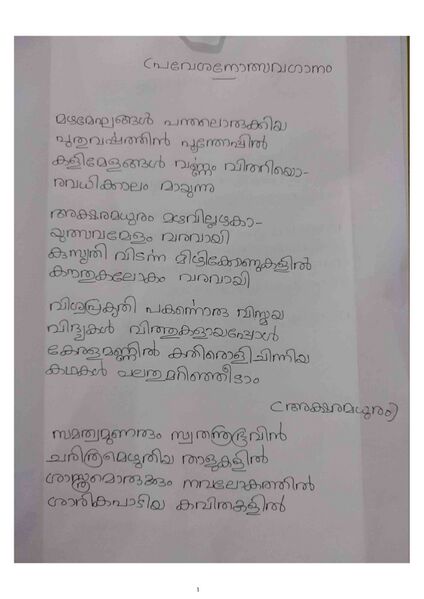 പ്രവേശനോത്സവഗാനം
മഴമേഘങ്ങൾ പന്തലൊരുക്കിയ
പുതുവർഷത്തിൻ പൂന്തോപ്പിൽ
കളിമേളങ്ങൾ വർണ്ണം വിതറിയൊ-
രവധിക്കാലം മായുന്നു
അക്ഷരമധുരം മഴവില്ലഴകാ-
യുത്സവമേളം വരവായി
കുസൃതി വിടർന്ന മിഴിക്കോണുകളിൽ
കൗതുകലോകം വരവായി
വിശ്വപ്രകൃതി പകർന്നൊരു വിസ്മയ
വിദ്യകൾ വിത്തുകളായപ്പോൾ
കേരളമണ്ണിൽ കതിരൊളിചിന്നിയ
കഥകൾ പലതുമറിഞ്ഞീടാം
(അക്ഷരമധുരം)
സമത്വമുണരും സ്വതന്ത്രഭൂവിൻ
ചരിത്രമെഴുതിയ താളുകളിൽ
ശാസ്ത്രമൊരുക്കും നവലോകത്തിൽ
ശാരികപാടിയ കവിതകളിൽ
1